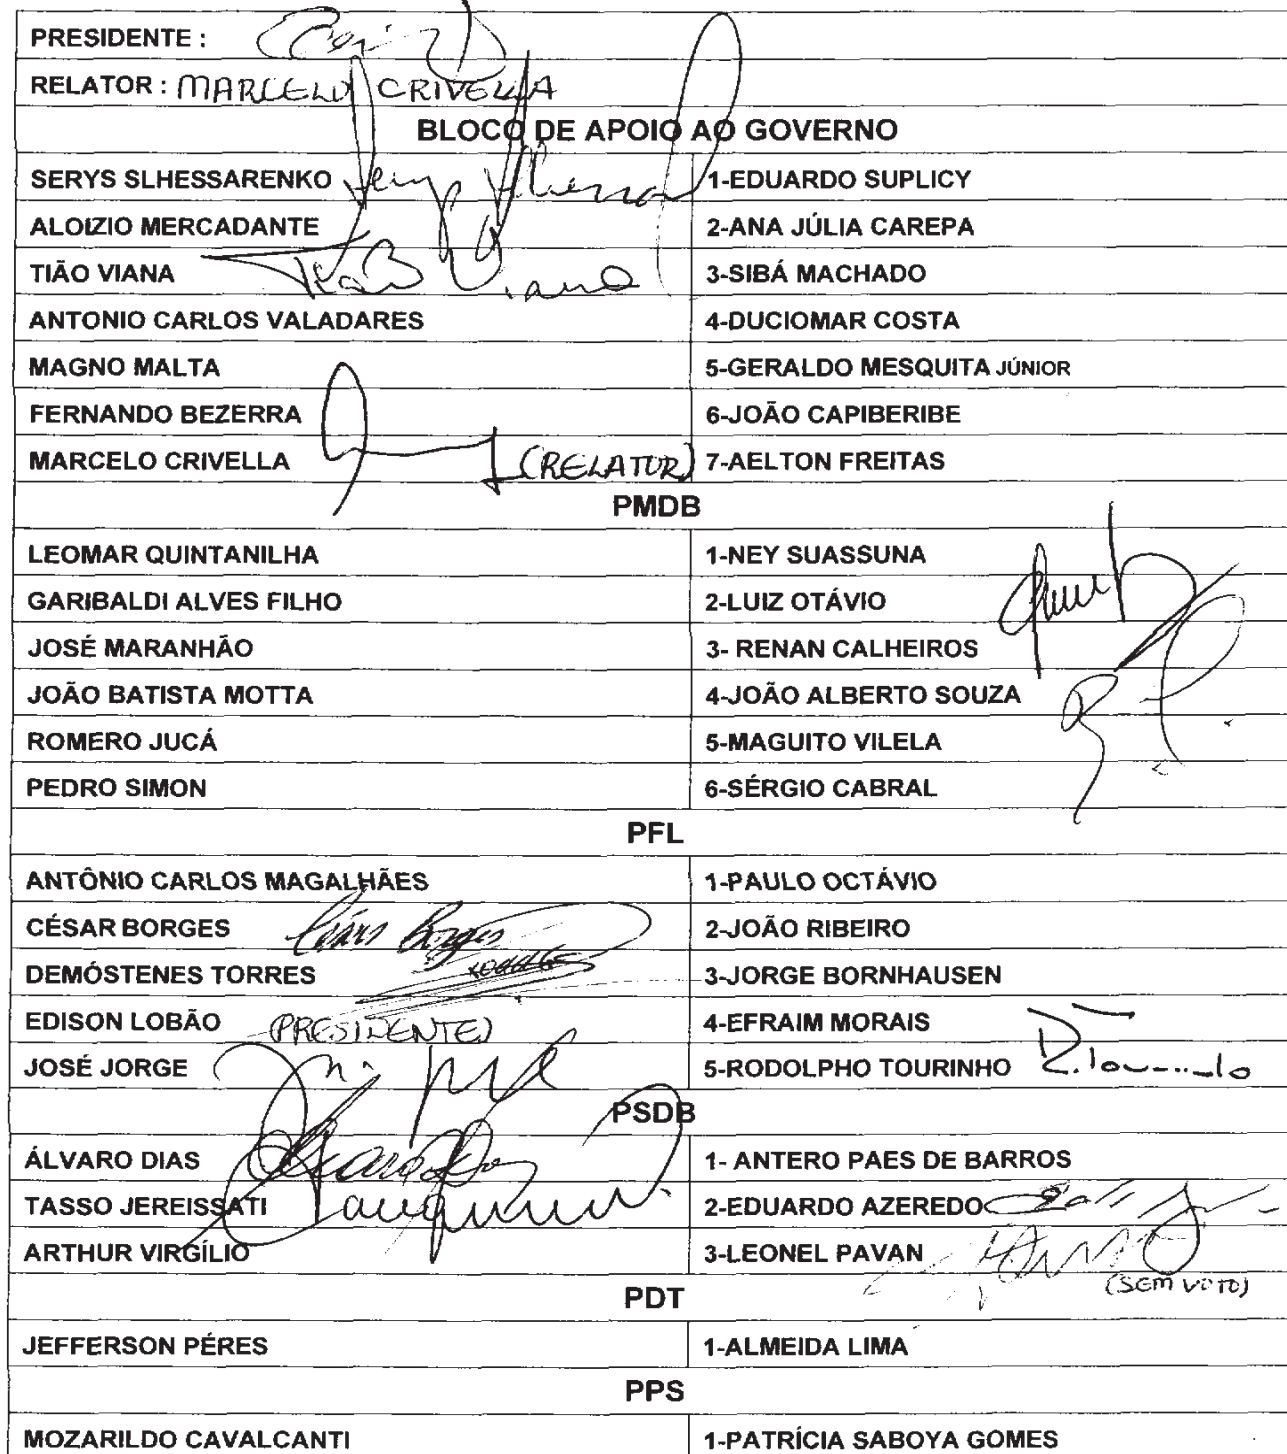 PRESIDENTE :
RELATOR : MARCELO CRIVELLA
BLOCO DE APOIO AO GOVERNO
SERYS SLHESSARENKO Serys Slhessar 1-EDUARDO SUPLICY
ALOIZIO MERCADANTE 2-ANA JÚLIA CAREPA
TIÃO VIANA Tião Viana 3-SIBÁ MACHADO
ANTONIO CARLOS VALADARES 4-DUCIOMAR COSTA
MAGNO MALTA 5-GERALDO MESQUITA JÚNIOR
FERNANDO BEZERRA 6-JOÃO CAPIBERIBE
MARCELO CRIVELLA (RELATOR) 7-AELTON FREITAS
PMDB
LEOMAR QUINTANILHA 1-NEY SUASSUNA
GARIBALDI ALVES FILHO 2-LUIZ OTÁVIO
JOSÉ MARANHÃO 3- RENAN CALHEIROS
JOÃO BATISTA MOTTA 4-JOÃO ALBERTO SOUZA
ROMERO JUCÁ 5-MAGUITO VILELA
PEDRO SIMON 6-SÉRGIO CABRAL
PFL
ANTÔNIO CARLOS MAGALHÃES 1-PAULO OCTÁVIO
CÉSAR BORGES César Borges 2-JOÃO RIBEIRO
DEMÓSTENES TORRES 3-JORGE BORNHAUSEN
EDISON LOBÃO (PRESIDENTE) 4-EFRAIM MORAIS
JOSÉ JORGE 5-RODOLPHO TOURINHO R. Tourinho
PSDB
ÁLVARO DIAS Alvaro Dias 1- ANTERO PAES DE BARROS
TASSO JEREISSATI 2-EDUARDO AZEREDO
ARTHUR VIRGÍLIO 3-LEONEL PAVAN
(SEM VOTO)
PDT
JEFFERSON PÉRES 1-ALMEIDA LIMA
PPS
MOZARILDO CAVALCANTI 1-PATRÍCIA SABOYA GOMES